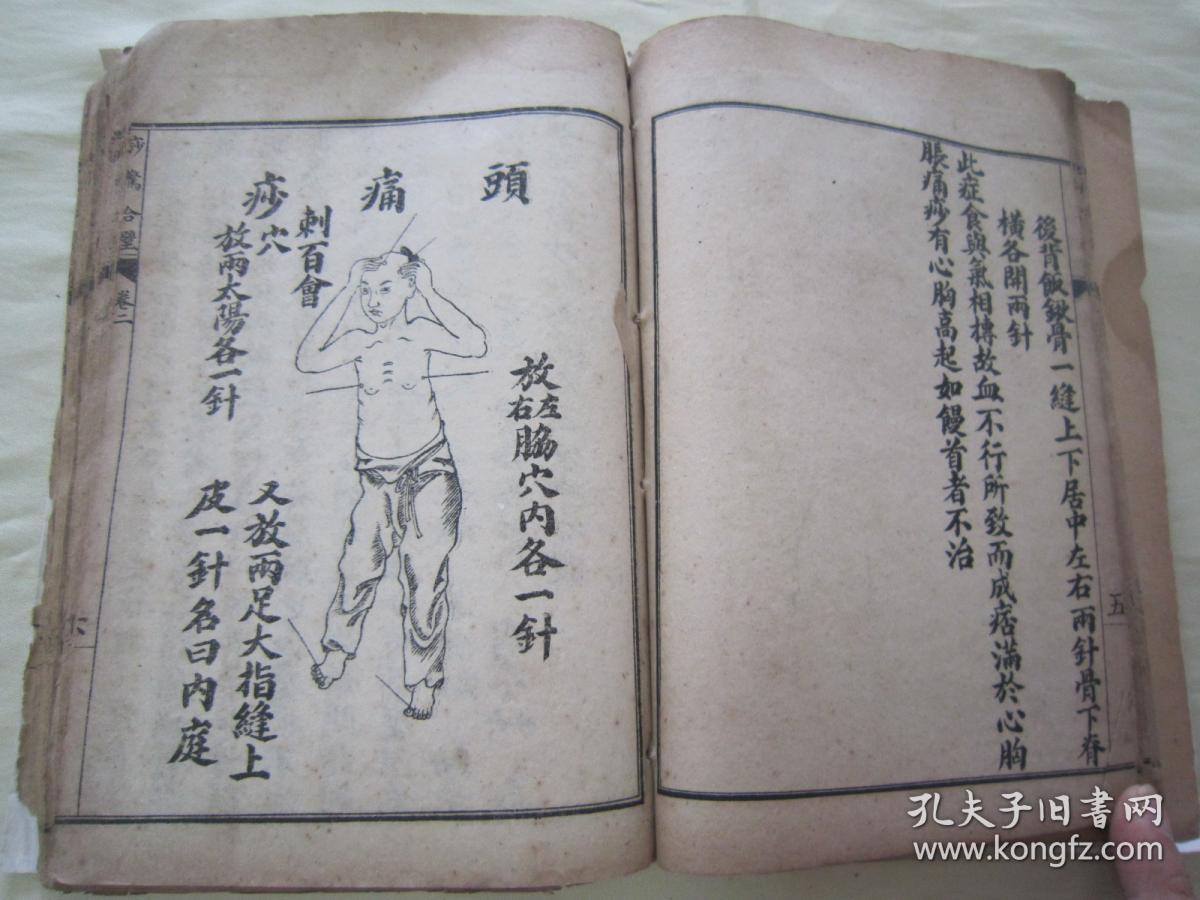 後背飯鍬骨一縫上下居中左右兩針骨下脊
橫各開兩針
此症食與氣相摶故血不行所致而成痞滿於心胸
脹痛痧有心胸高起如饅首者不治
五
頭痛痧
放左右脇穴內各一針
刺百會
穴
放兩太陽各一針
又放兩足大指縫上
皮一針名曰內庭
痧驚合璧
卷二
孔夫子旧书网
www.kongfz.com